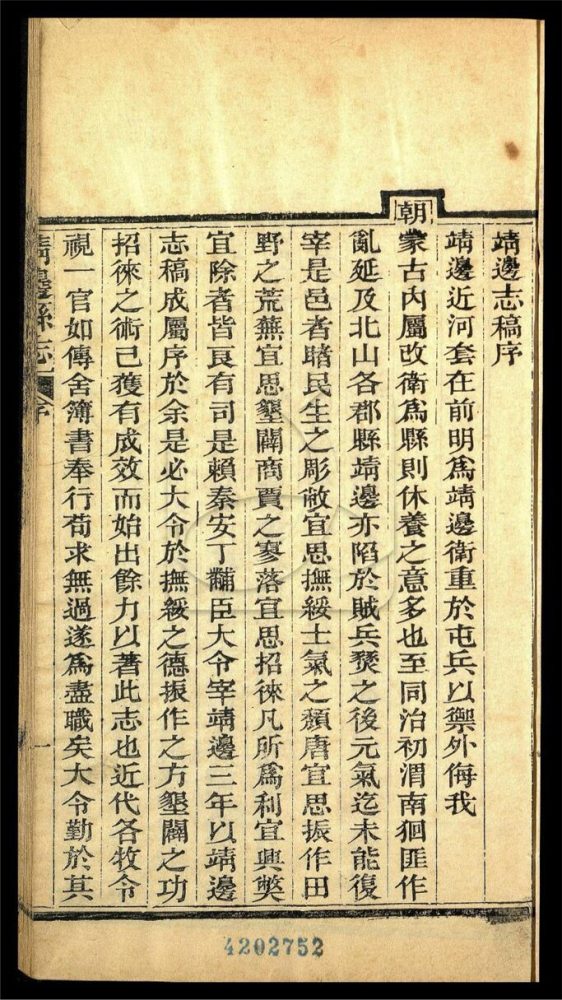 靖邊志稿序
靖邊近河套在前明爲靖邊衛重於屯兵以禦外侮我
朝蒙古內屬改衛爲縣則休養之意多也至同治初渭南狪匪作
亂延及北山各郡縣靖邊亦陷於賊兵燹之後元氣迄未能復
宰是邑者睹民生之彫敝宜思撫綏士氣之頹唐宜思振作田
野之荒蕪宜思墾闢商賈之寥落宜思招徠凡所爲利宜興獘
宜除者皆良有司是賴秦安丁黼臣大令宰靖邊三年以靖邊
志稿成屬序於余是必大令於撫綏之德振作之方墾闢之功
招徠之術已獲有成效而始出餘力以著此志也近代各牧令
視一官如傳舍簿書奉行苟求無過遂爲盡職矣大令勤於其
靖邊縣志 序 一
4202752